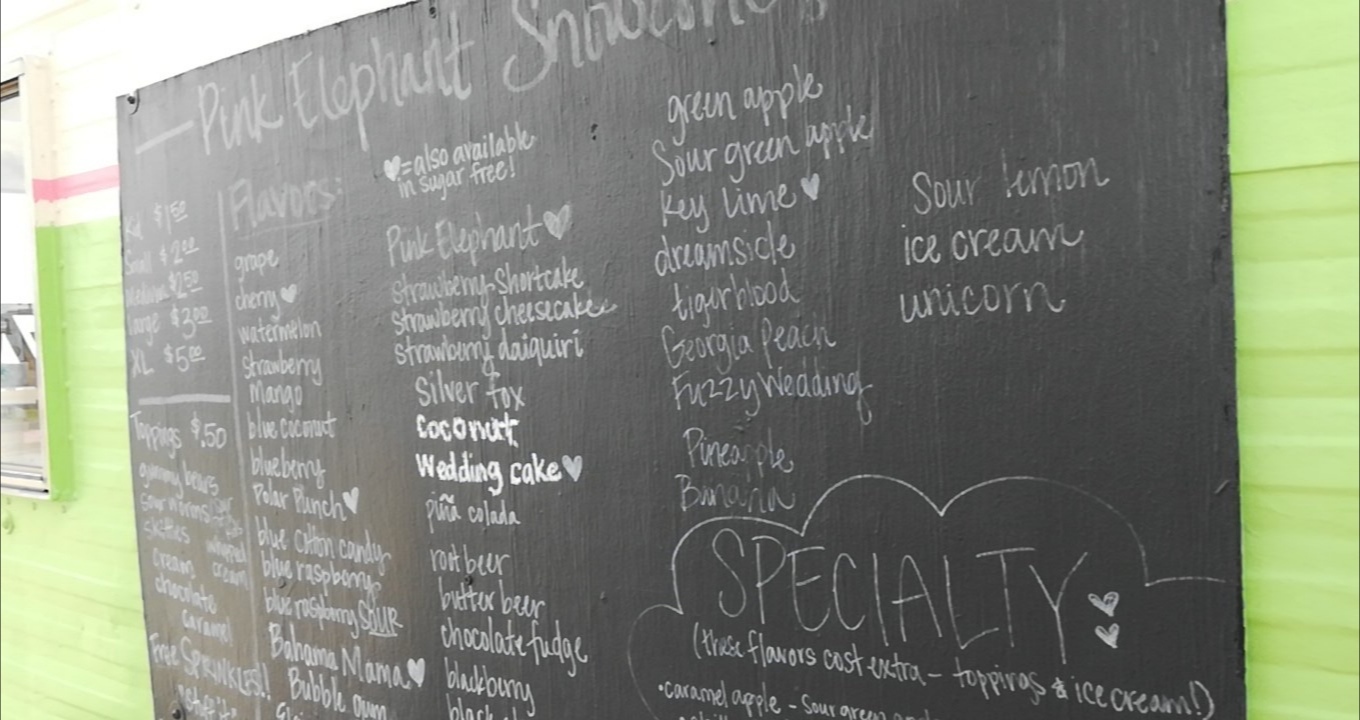 Pink Elephant Snowcones
Kid $1.50
Small $2.00
Medium $2.50
Large $3.00
XL $5.00
Toppings $.50
gummy bears
sour worms
skittles
whipped
cream
cream
chocolate
caramel
Free SPRINKLES!!
"stuff it"
Flavors:
grape
cherry
watermelon
Strawberry
Mango
blue coconut
blueberry
Polar Punch
blue cotton candy
blue raspberry
blue raspberry SOUR
Bahama Mama
Bubble gum
♥=also available
in sugar free!
Pink Elephant ♥
strawberry shortcake
strawberry cheesecake
strawberry daiquiri
Silver fox
coconut
Wedding cake ♥
piñã colada
root beer
butter beer
chocolate fudge
blackberry
green apple
Sour green apple
key lime ♥
dreamsicle
tigerblood
Georgia Peach
Fuzzy Wedding
Pineapple
Banana
Sour lemon
ice cream
unicorn
SPECIALTY
(these flavors cost extra - toppings & ice cream!)
•caramel apple - sour green